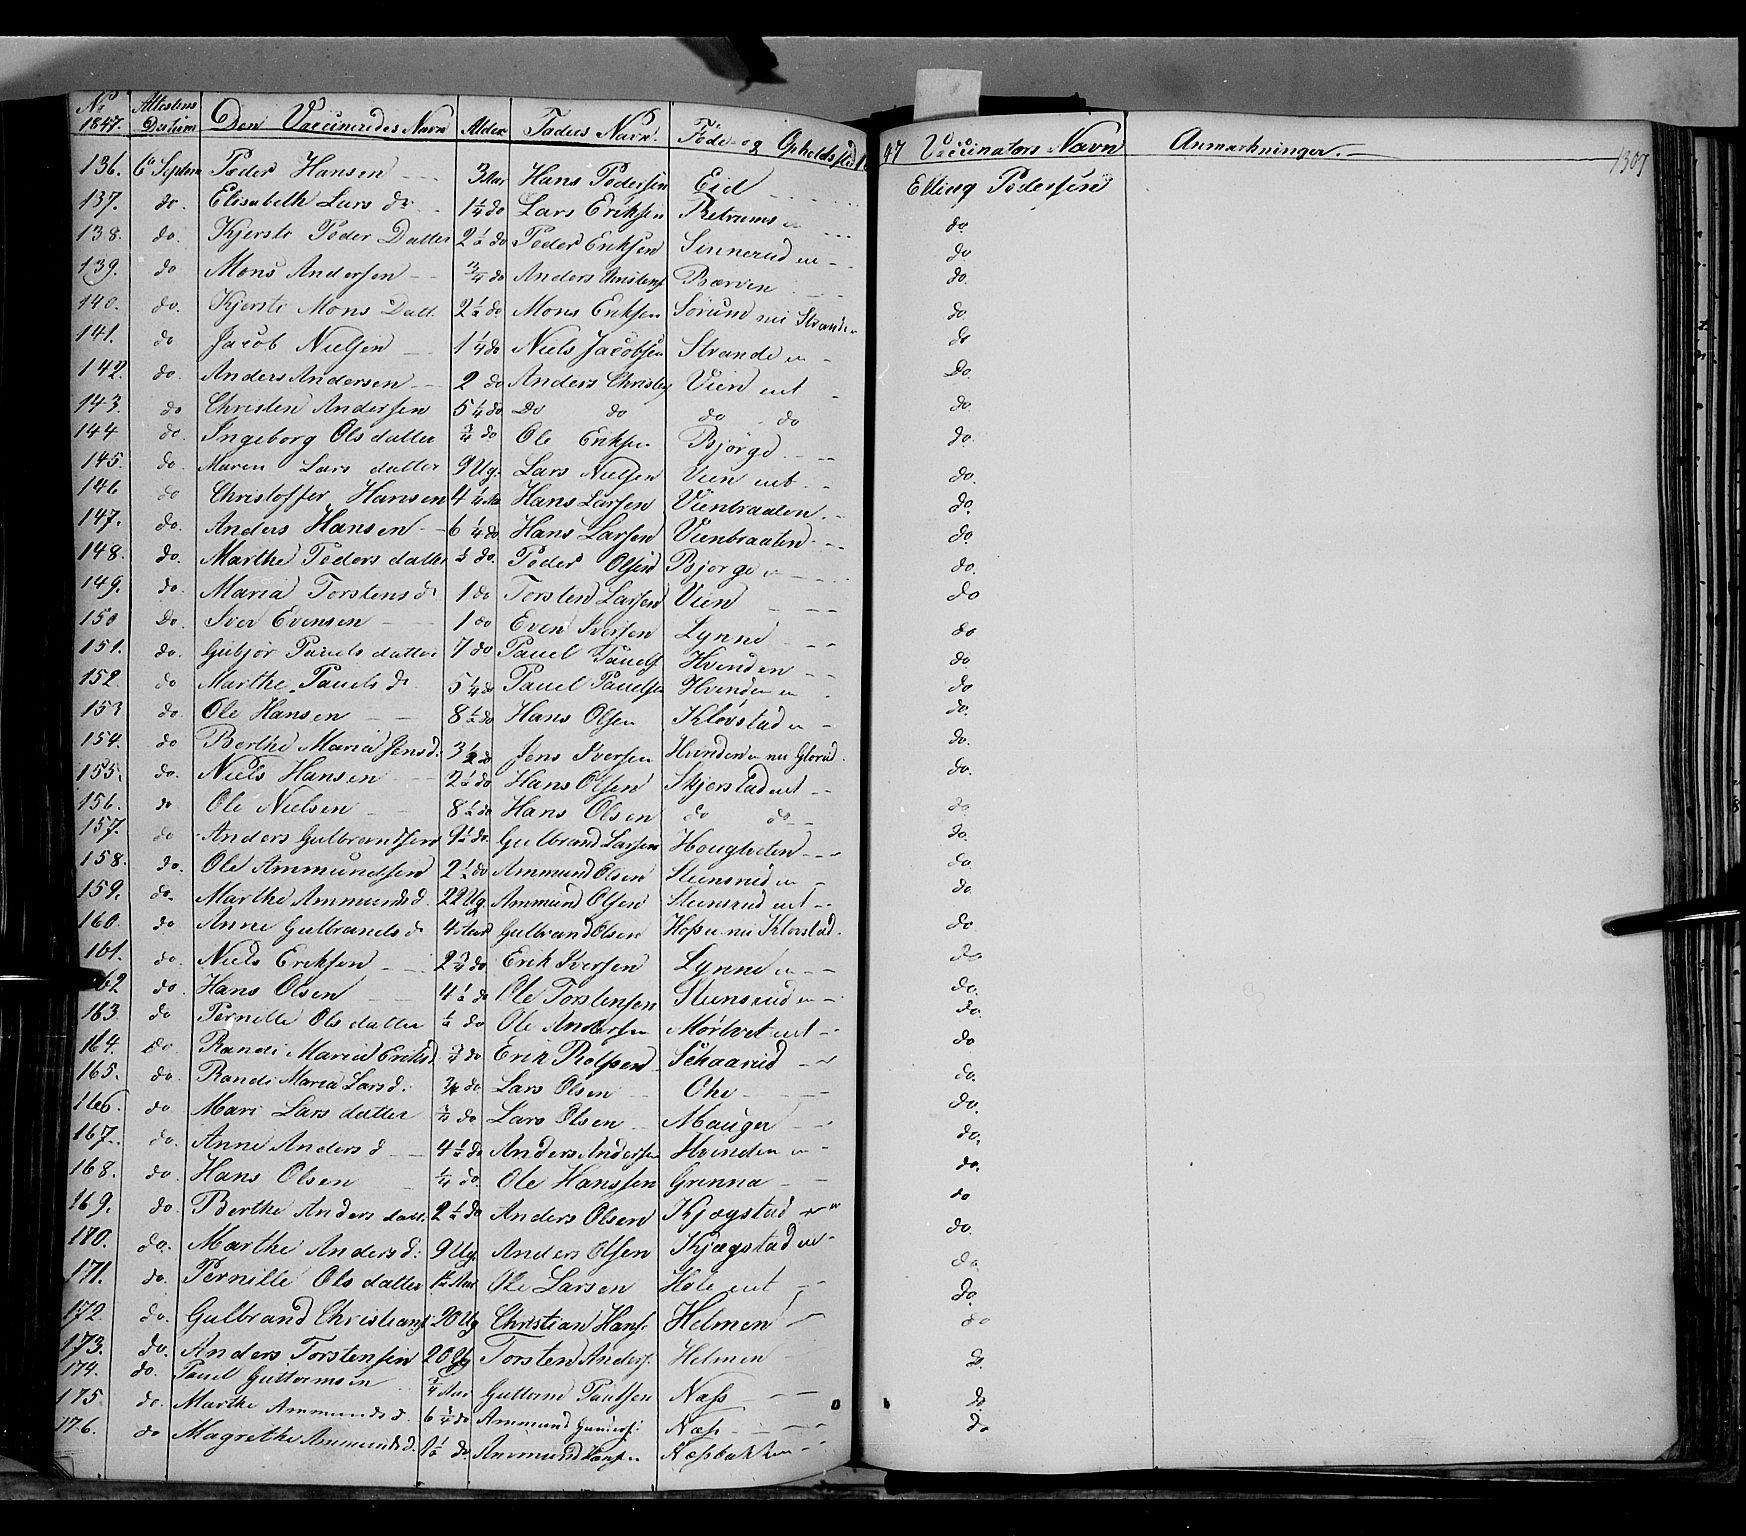 No 1847. Attestens Datum Den Vaccineredes Navn Alder Faders Navn. Føde- og Opholdssted 1847 Vaccinators Navn Anmærkninger. 1307
136. 6 Septem Peder Hansen 3 Aar Hans Pedersen Eid Elling Pedersen
137. do. Elisabeth Lars dr 1 1/4 do Lars Eriksen do.
138. do. Kjersti Peder Datter 2 1/2 do Peder Eriksen Sinnerud do
139. do Mons Andersen 3/4 do Anders Christens do.
140. do. Kjersti Mons Datt. 2 1/2 do Mons Eriksen Sørum nu Strande do.
141. do Jacob Nielsen 1 1/4 do Niels Jacobsen Strande do
142. do. Anders Andersen 2 do Anders Christens Vien do.
143. do Christen Andersen 5 1/4 do do do do do do.
144 do. Ingeborg Olsdatter 3/4 do Ole Eriksen Bjørge do.
145. do. Maren Lars datter 9 Ug. Lars Nielsen Vien do.
146 do Christoffer Hansen 4 1/4 Aar Hans Larsen Vienbraaten do.
147. do. Anders Hansen 6 1/4 do Hans Larsen Vienbraaten do.
148. do. Marthe Peders datter 1/2 do. Peder Olsen Bjørge do.
149. do. Maria Torstens d. 1 do Torsten Larsen Vien do
150 do. Iver Evensen 1 do Even Iversen Lynne do
151. do. Gubjør Pauels datter 7 do Pauel Pauels Hvinden do
152. do Marthe Pauels dr. 5 1/4 do Pauel Pauelsen Hvinden do
153 do. Ole Hansen 8 1/2 do Hans Olsen Kløvstad do.
154. do Berthe Maria Jensd. 3 1/2 do Jens Iversen Hvinden nu do.
155. do. Niels Hansen 2 1/2 do Hans Olsen Skjerstad do.
156. do Ole Nielsen 8 1/2 do Hans Olsen do do do
157. do Anders Gulbrandsen 9 1/2 do. Gulbrand Larsen Hougtveten do.
158. do. Ole Ammundsen 2 1/2 do Ammund Olsen Steensrud do
159. do. Marthe Ammunds d. 22 Ug. Ammund Olsen Steensrud do
160. do Anne Gulbrands d 4 Aar Gulbrand Olsen nu Kløvstad. do
161. do. Niels Eriksen 2 3/4 do Erik Iversen Lynne do
162 do. Hans Olsen 4 1/2 do Ole Torstensen Steensrud do.
163. do Pernille Olsdatter 1/2 do Ole Andersen Mørtvet do.
164. do. Randi Maria Eriksd 3/4 do Erik Rolfsen Schaarud do
165. do. Randi Maria Larsd. 3/4 do Lars Olsen do.
166. do Mari Lars datter 3/4 do Lars Olsen Mauger do.
167. do. Anne Anders d 4 1/2 do Anders Andersen Hvinden do.
168. do. Hans Olsen 1/4 do. Ole Hanssen Grenna do.
169. do. Berthe Anders datt. 2 1/2 do Anders Olsen Kjægstad do
180. do. Marthe Anders d. 9 Ug. Anders Olsen Kjægstad do.
171. do. Pernille Olsdatter Aar Ole Larsen Hole do.
172. do. Gulbrand Christians 20 Ug Christian Hans. Helmen do.
173. do. Anders Torstensen 20 Ug Torsten Anders. Helmen do
174. do. Pauel Guttormsen 3/4 Aar Guttorm Paulsen Næss do.
175 do. Marthe Ammunds d. 6 1/4 do Ammund Næss do.
176. do Magrethe Ammundsd. 1 1/2 do. Ammund Næssbakken do